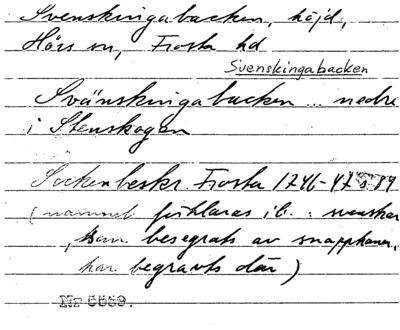 Svenskingabacken, höjd,
Hörs sn, Frosta hd
Svenskingabacken
Svänskingabacken ... nedre
i Stenskogen
Sockenbeskr. Frosta 1746-47 s 84
(namnet förklaras i b. : svenskar
, som besegrats av snapphanar,
har begravts där)
Nr 5559.